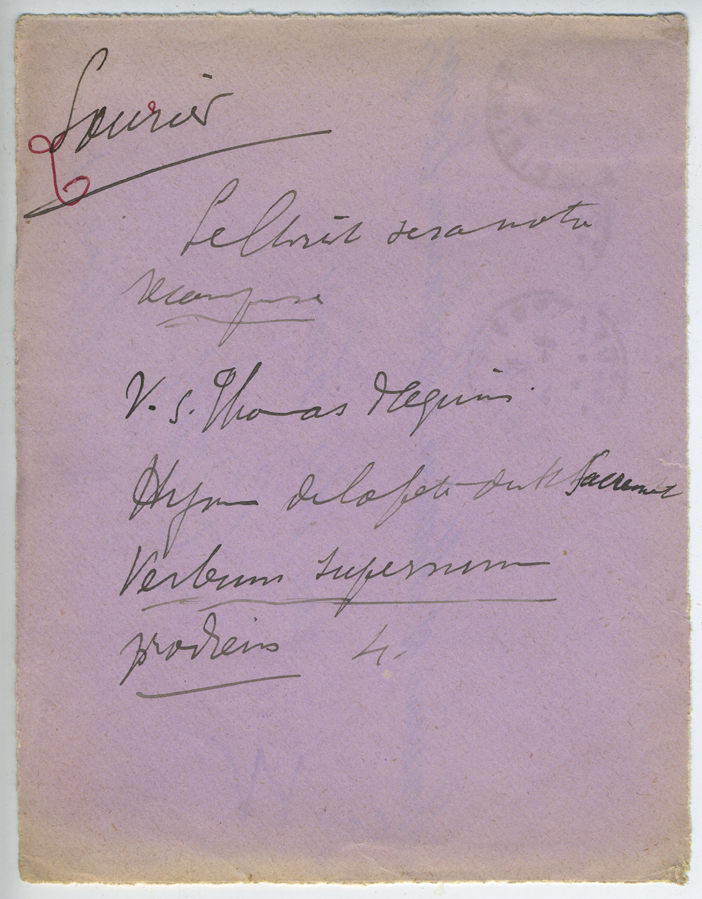 Sourier
Le Christ sera notre
récompense
V. S. Thomas d'Aquin.
Hymne de la fête du St Sacrement
Verbum supernum
prodiens 4.